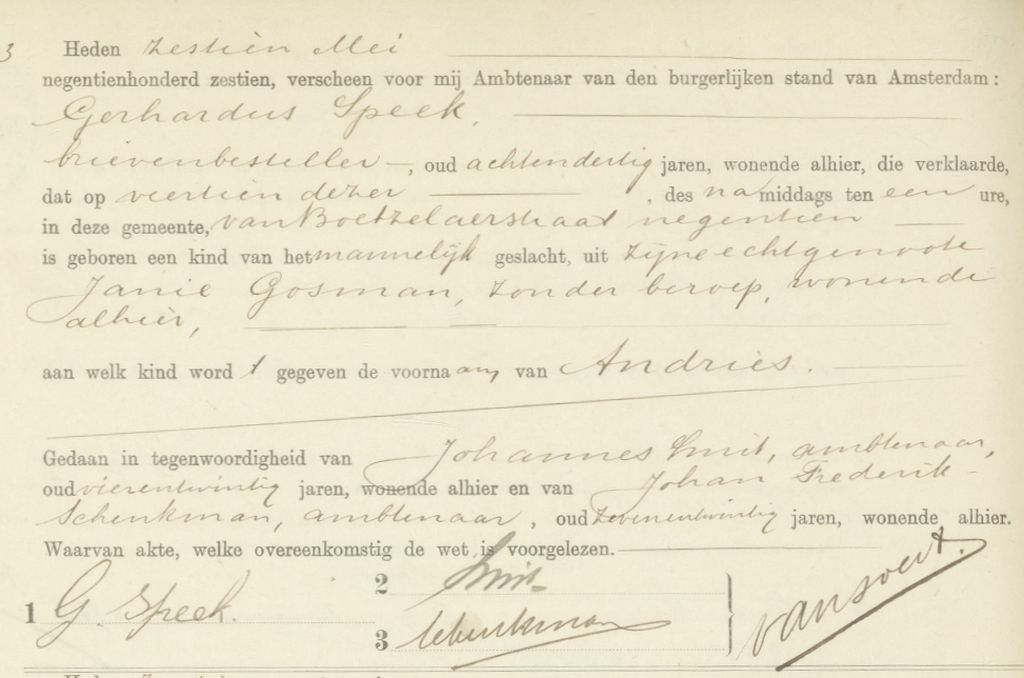 3 Heden zestien Mei
negentienhonderd zestien, verscheen voor mij Ambtenaar van den burgerlijken stand van Amsterdam:
Gerhardus Speek,
brievenbesteller, oud achtendertig jaren, wonende alhier, die verklaarde,
dat op veertien dezer, des namiddags ten een ure,
in deze gemeente, van Boetzelaerstraat negentien
is geboren een kind van het mannelijk geslacht, uit zijne echtgenoote
Janie Gosman, zonder beroep, wonende
alhier,
aan welk kind word t gegeven de voornaam van Andries.
Gedaan in tegenwoordigheid van Johannes Smit, ambtenaar,
oud vierentwintig jaren, wonende alhier en van Johan Frederik
Schenkman, ambtenaar, oud zevenentwintig jaren, wonende alhier.
Waarvan akte, welke overeenkomstig de wet is voorgelezen.
1 G. Speek.
2 Smit
3 Schenkman